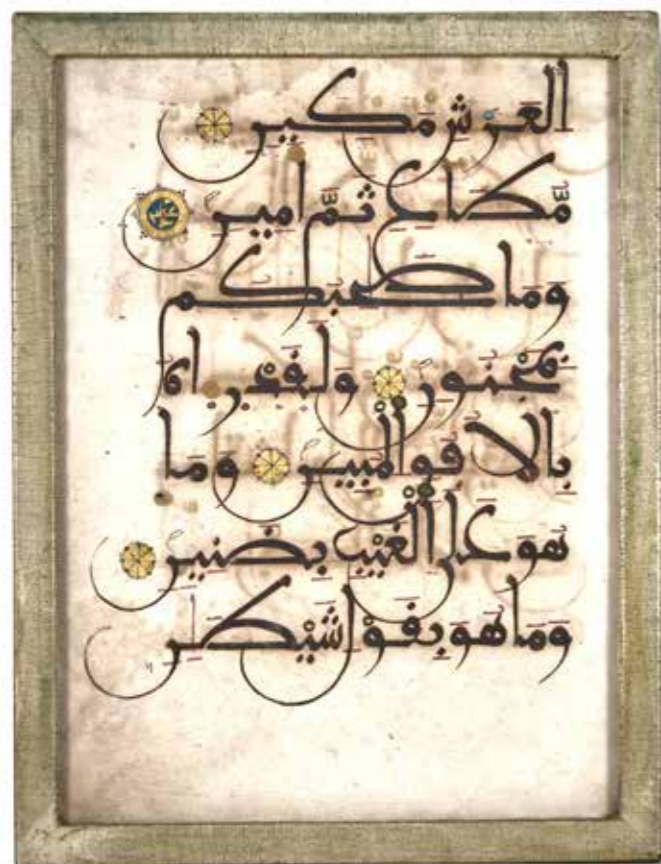 العرش مكين
مطاع ثم امين
وما صحبكم
بمجنون ولقد راه
بالافق المبين وما
هو على الغيب بضنين
وما هو بقول شيطن